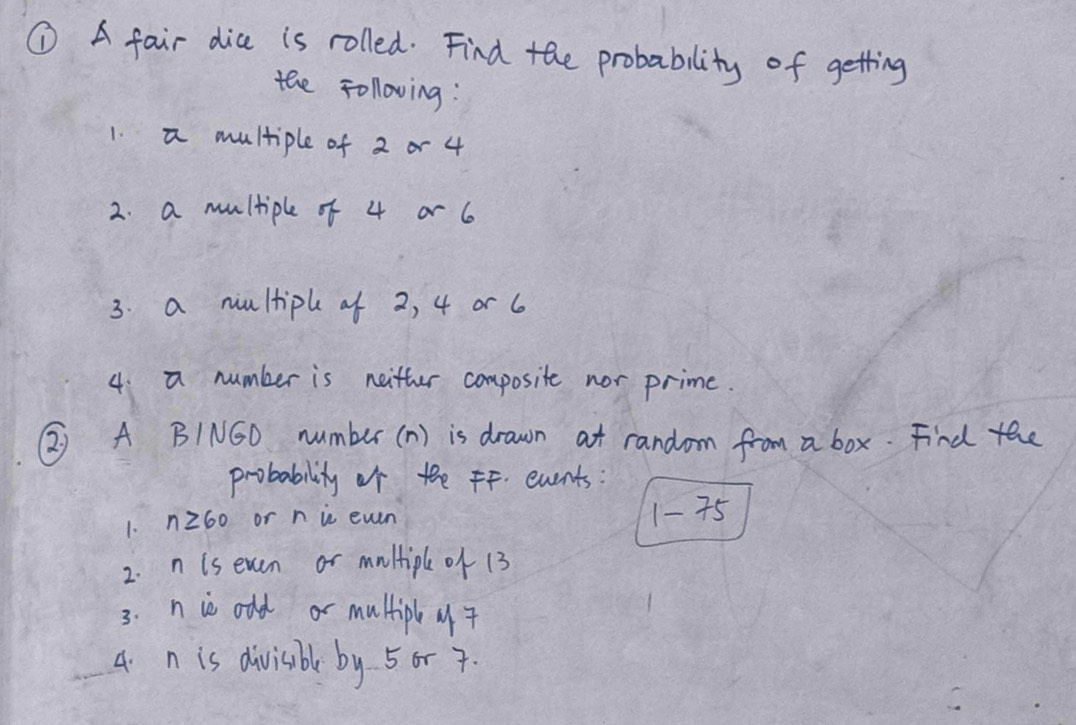 ① A fair dice is rolled. Find the probability of getting
the Following:
1. a multiple of 2 or 4
2. a multiple of 4 or 6
3. a multiple of 2, 4 or 6
4. a number is neither composite nor prime.
② A BINGO number (n) is drawn at random from a box. Find the
probability of the FF. events:
1 - 75
1. n≥60 or n is even
2. n is even or multiple of 13
3. n is odd or multiple of 7
4. n is divisible by 5 or 7.